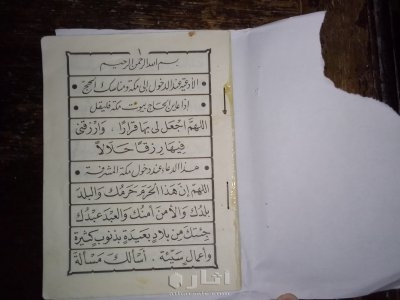 ١
بسم الله الرحمن الرحيم
• الأدعية عند الدخول إلى مكة ومناسك الحج •
إذا عاين الحاج بيوت مكة فليقل
اللهُمَّ اجْعَل لِى بِهَا قَرَارًا . وَارْزُقنى
فِيهَا رِزقًا حَلَالًا
• هذا الدعاء عند دخول مكة المشرفة •
اللهُم إنَّ هَذَا الحَرَمَ حَرَمُكَ وَالبَلَدَ
بَلَدُكَ وَالأَمنَ أَمنُكَ وَالعَبدَ عَبدُكَ
جِئتُكَ مِن بِلَادٍ بَعِيدَةٍ بِذنُوبٍ كَثِيرَة
وَأعمَالٍ سَيِّئَة . أسألُكَ مَسألَةَ